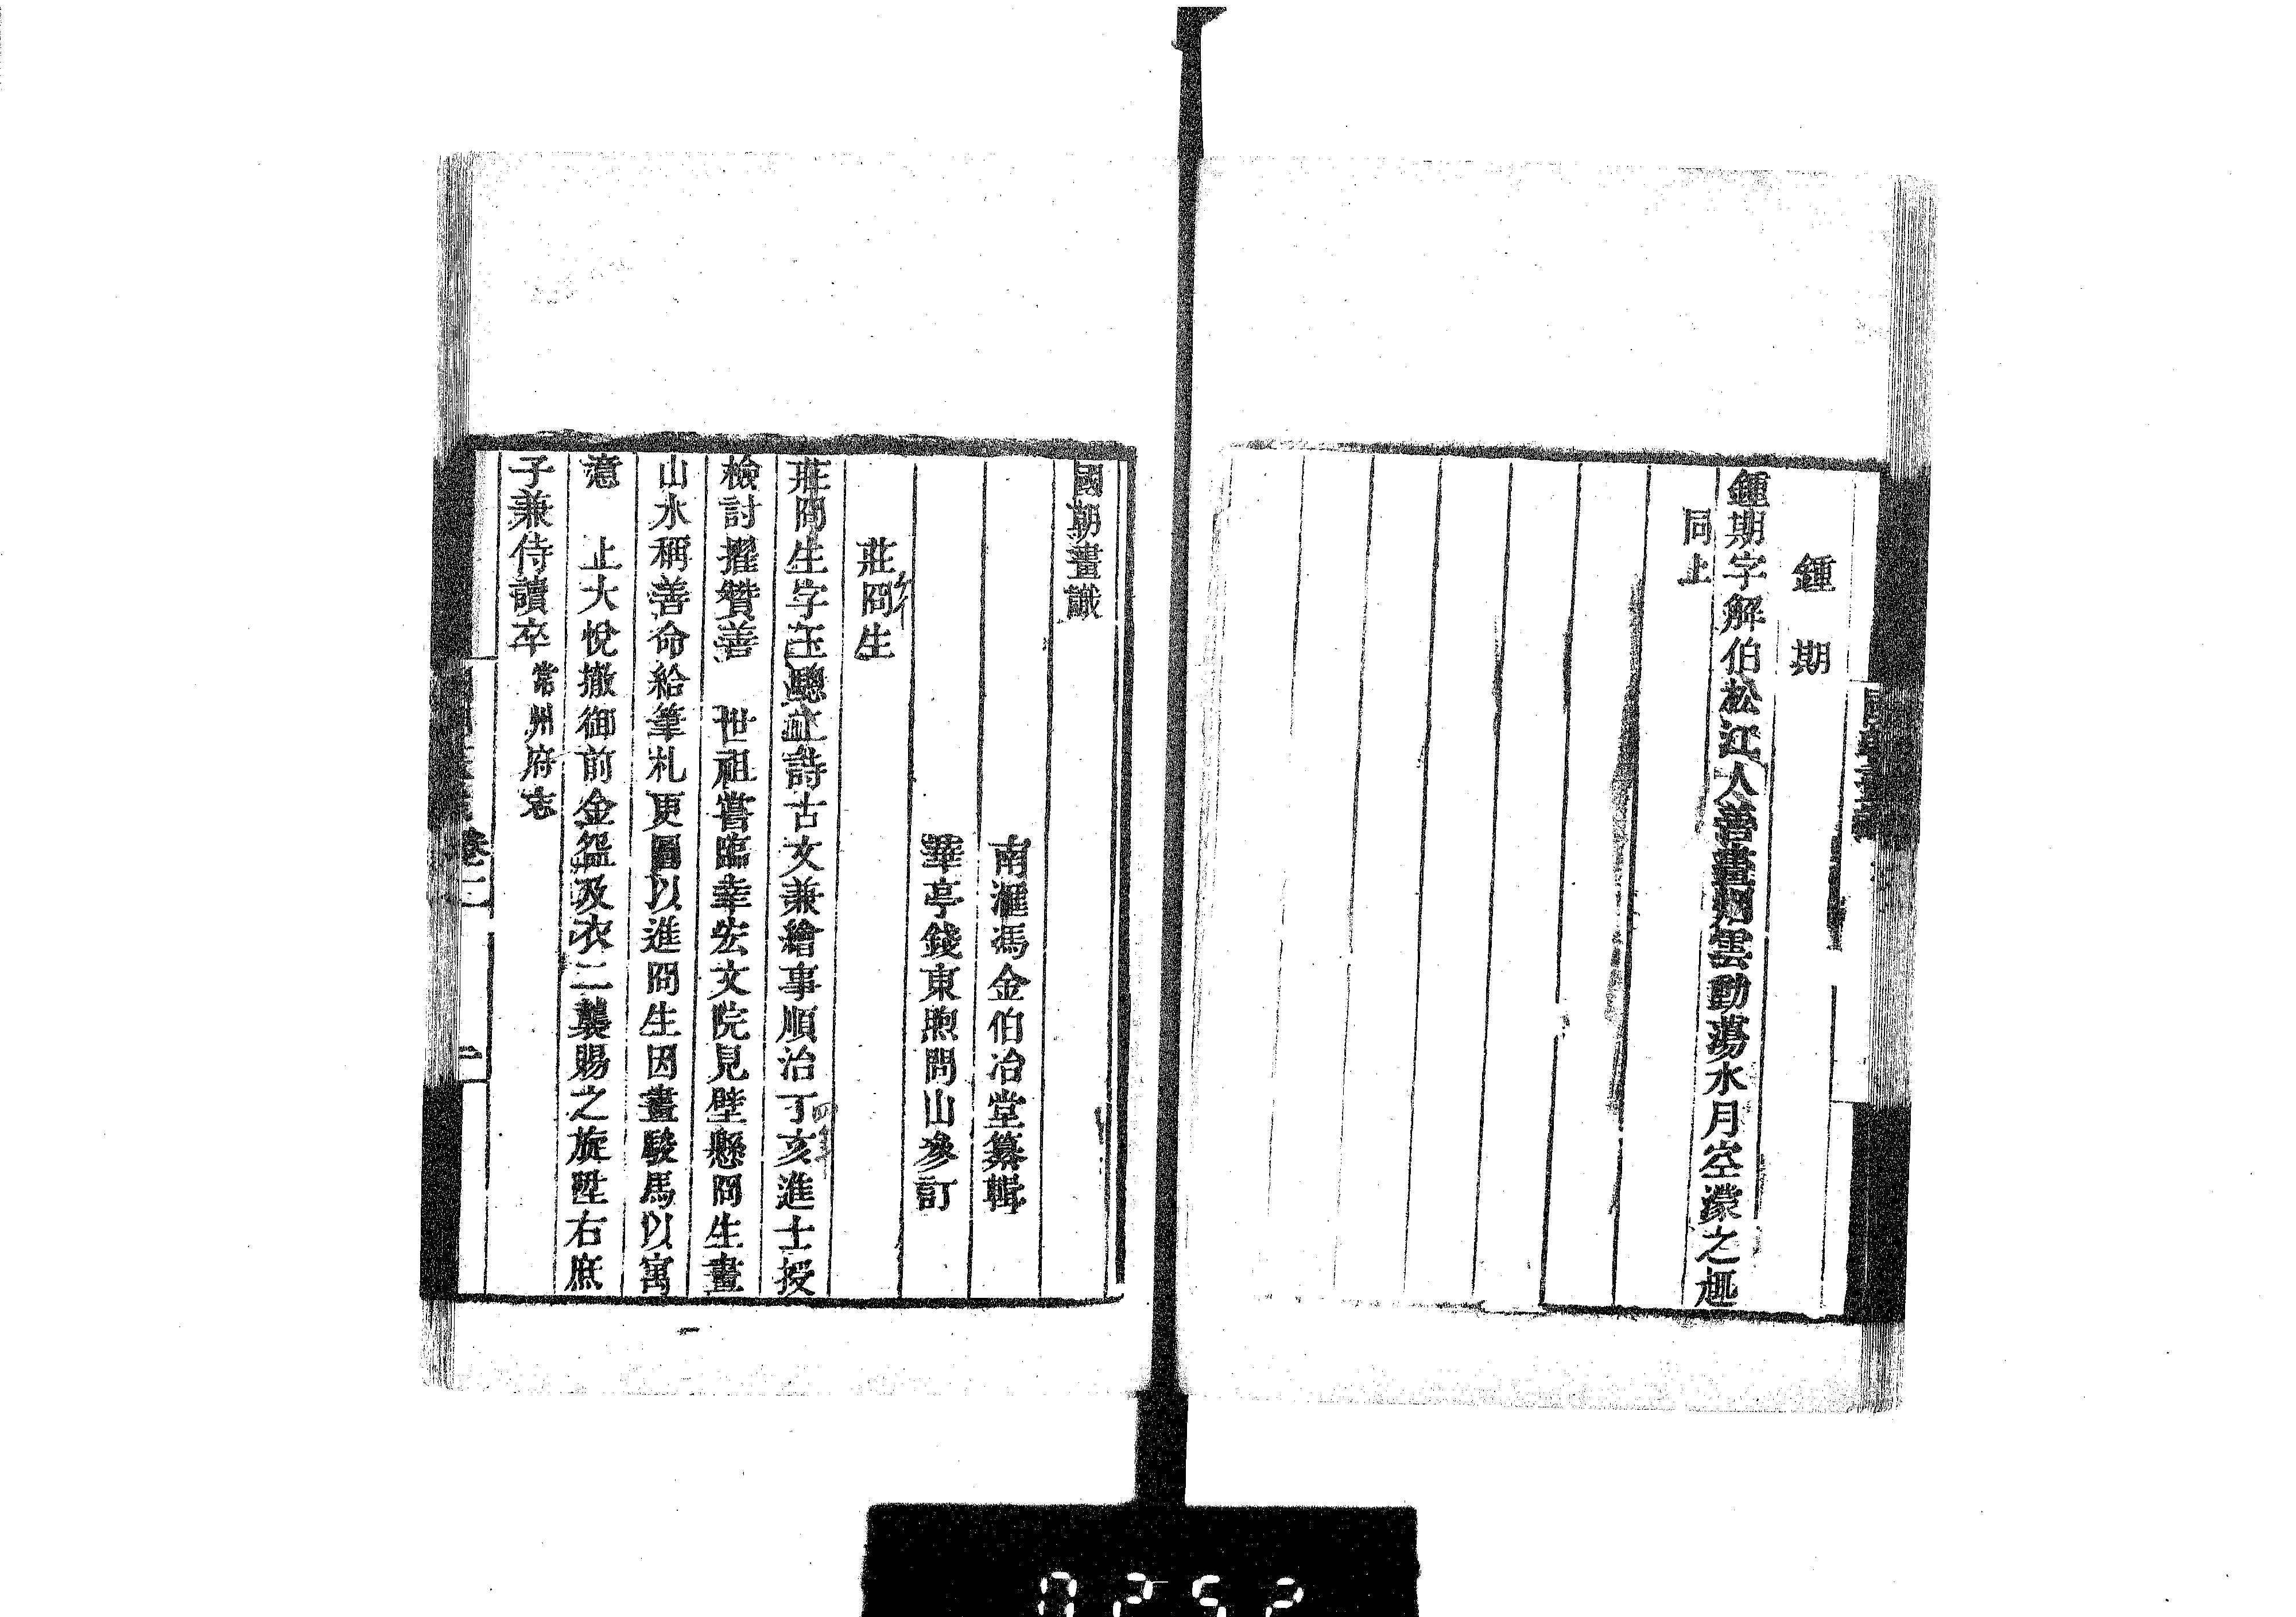 鍾期
鍾期字解伯松江人善畫烟雲動蕩水月空濛之趣
同上
國朝畫識
南滙馮金伯冶堂纂輯
華亭錢東煦問山參訂
莊冏生
莊冏生字玉驄工詩古文兼繪事順治丁亥進士授
檢討擢贊善　世祖嘗臨幸宏文院見壁懸冏生畫
山水稱善命給筆札更圖以進冏生因畫駿馬以寓
意　上大悅撤御前金盌及衣二襲賜之旋陞右庶
子兼侍讀卒常州府志
卷二
0252